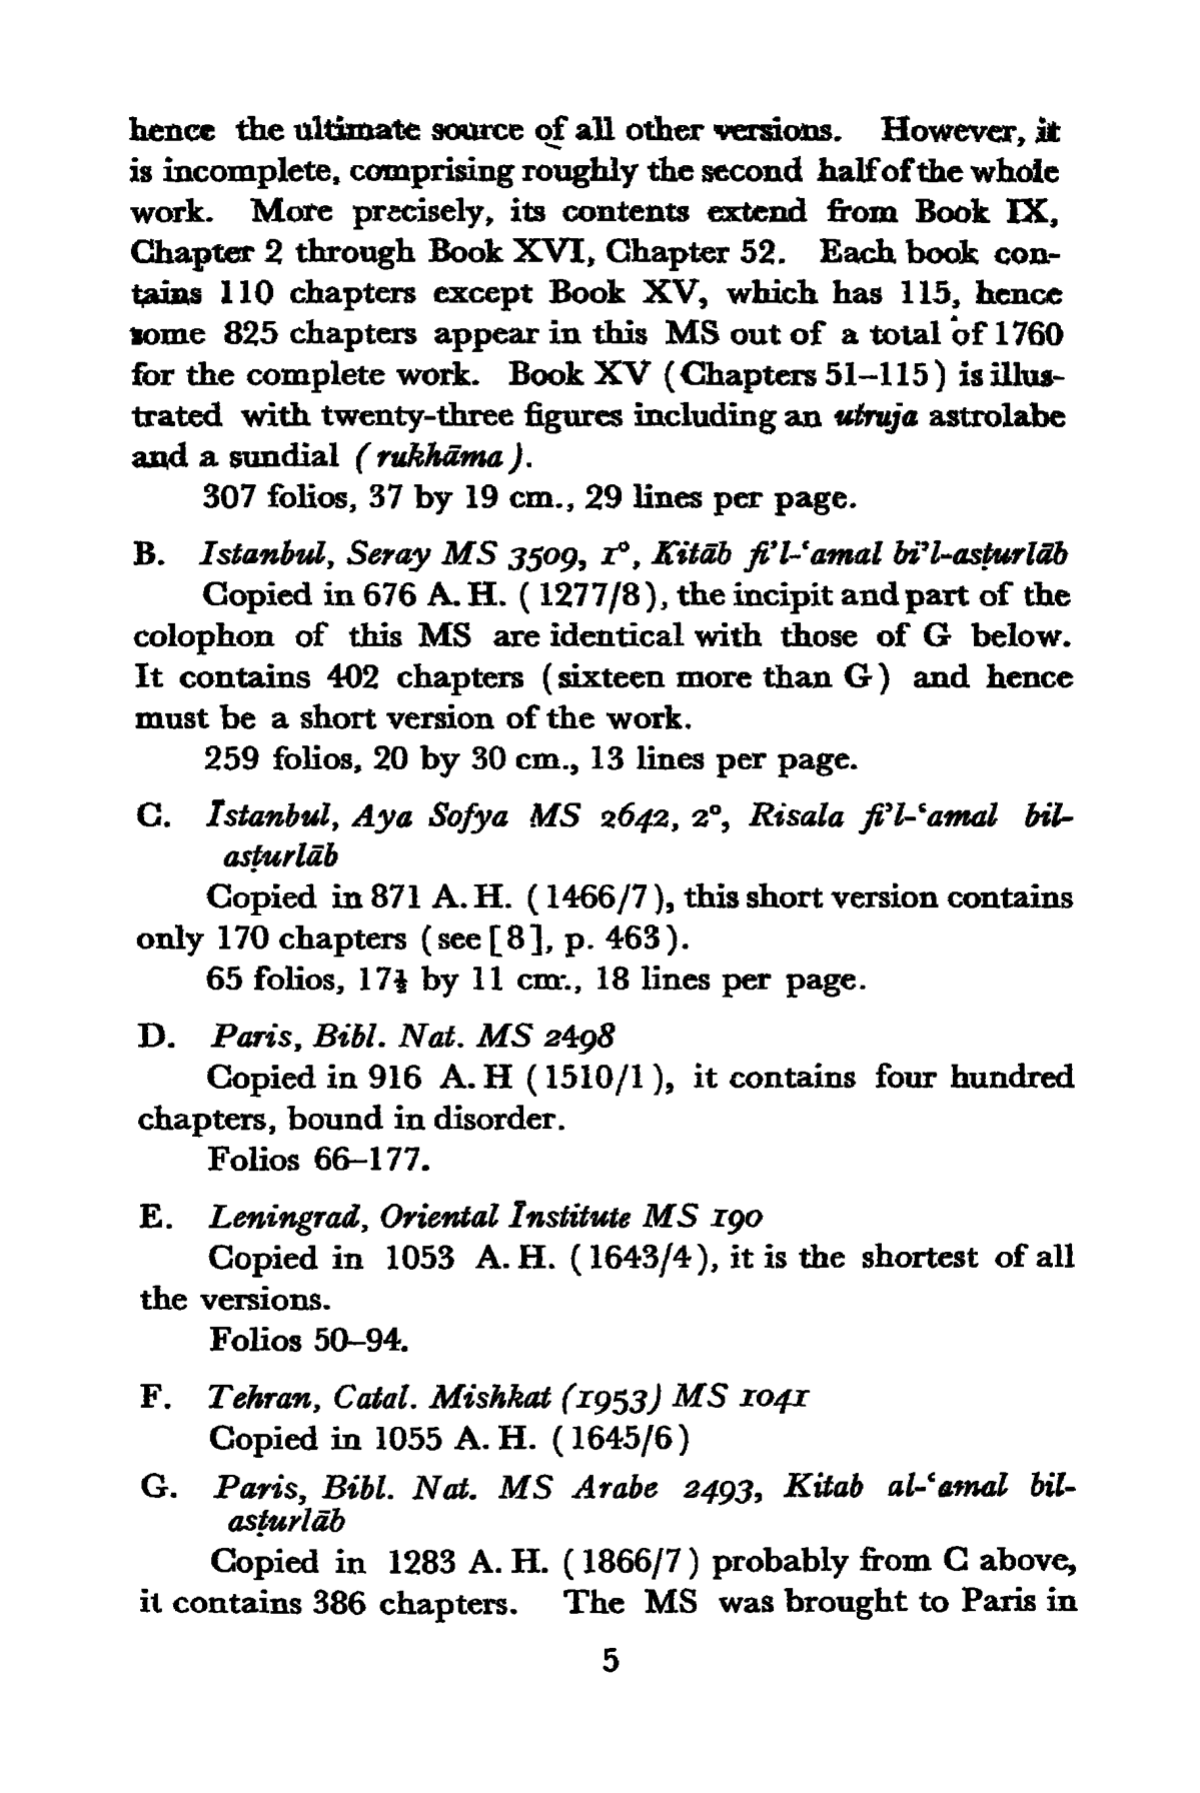 hence the ultimate source of all other versions. However, it
is incomplete, comprising roughly the second half of the whole
work. More precisely, its contents extend from Book IX,
Chapter 2 through Book XVI, Chapter 52. Each book con-
tains 110 chapters except Book XV, which has 115, hence
some 825 chapters appear in this MS out of a total of 1760
for the complete work. Book XV (Chapters 51–115) is illus-
trated with twenty-three figures including an utruja astrolabe
and a sundial (rukhāma).
307 folios, 37 by 19 cm., 29 lines per page.
B. Istanbul, Seray MS 3509, 1°, Kitāb fi’l-‘amal bi’l-asṭurlāb
Copied in 676 A. H. (1277/8), the incipit and part of the
colophon of this MS are identical with those of G below.
It contains 402 chapters (sixteen more than G) and hence
must be a short version of the work.
259 folios, 20 by 30 cm., 13 lines per page.
C. Istanbul, Aya Sofya MS 2642, 2°, Risala fi’l-‘amal bil-
asṭurlāb
Copied in 871 A. H. (1466/7), this short version contains
only 170 chapters (see [8], p. 463).
65 folios, 17½ by 11 cm., 18 lines per page.
D. Paris, Bibl. Nat. MS 2498
Copied in 916 A. H (1510/1), it contains four hundred
chapters, bound in disorder.
Folios 66–177.
E. Leningrad, Oriental Institute MS 190
Copied in 1053 A. H. (1643/4), it is the shortest of all
the versions.
Folios 50–94.
F. Tehran, Catal. Mishkat (1953) MS 1041
Copied in 1055 A. H. (1645/6)
G. Paris, Bibl. Nat. MS Arabe 2493, Kitab al-‘amal bil-
asṭurlāb
Copied in 1283 A. H. (1866/7) probably from C above,
it contains 386 chapters. The MS was brought to Paris in
5